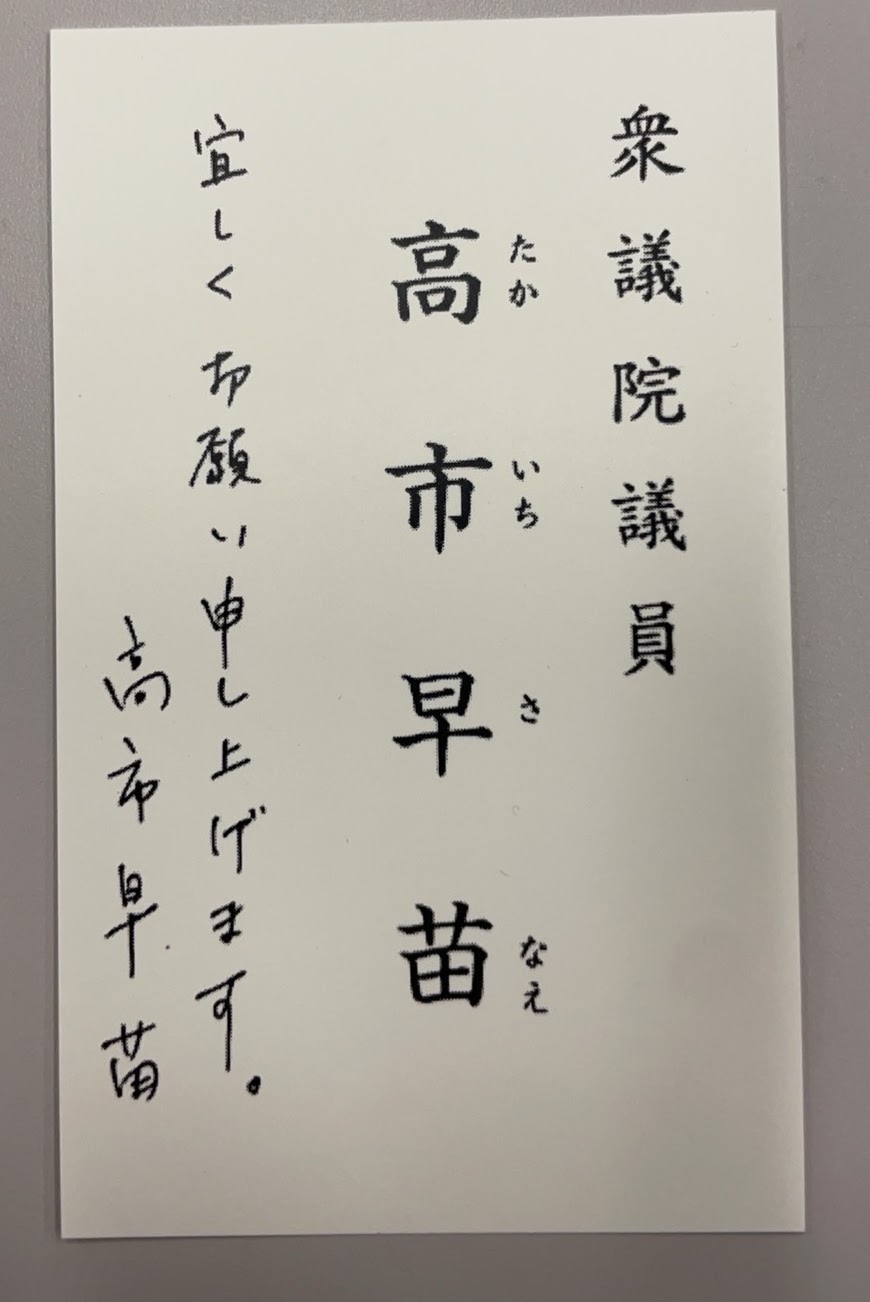 衆議院議員
たかいちさなえ
高市早苗
宜しくお願い申し上げます。
高市早苗